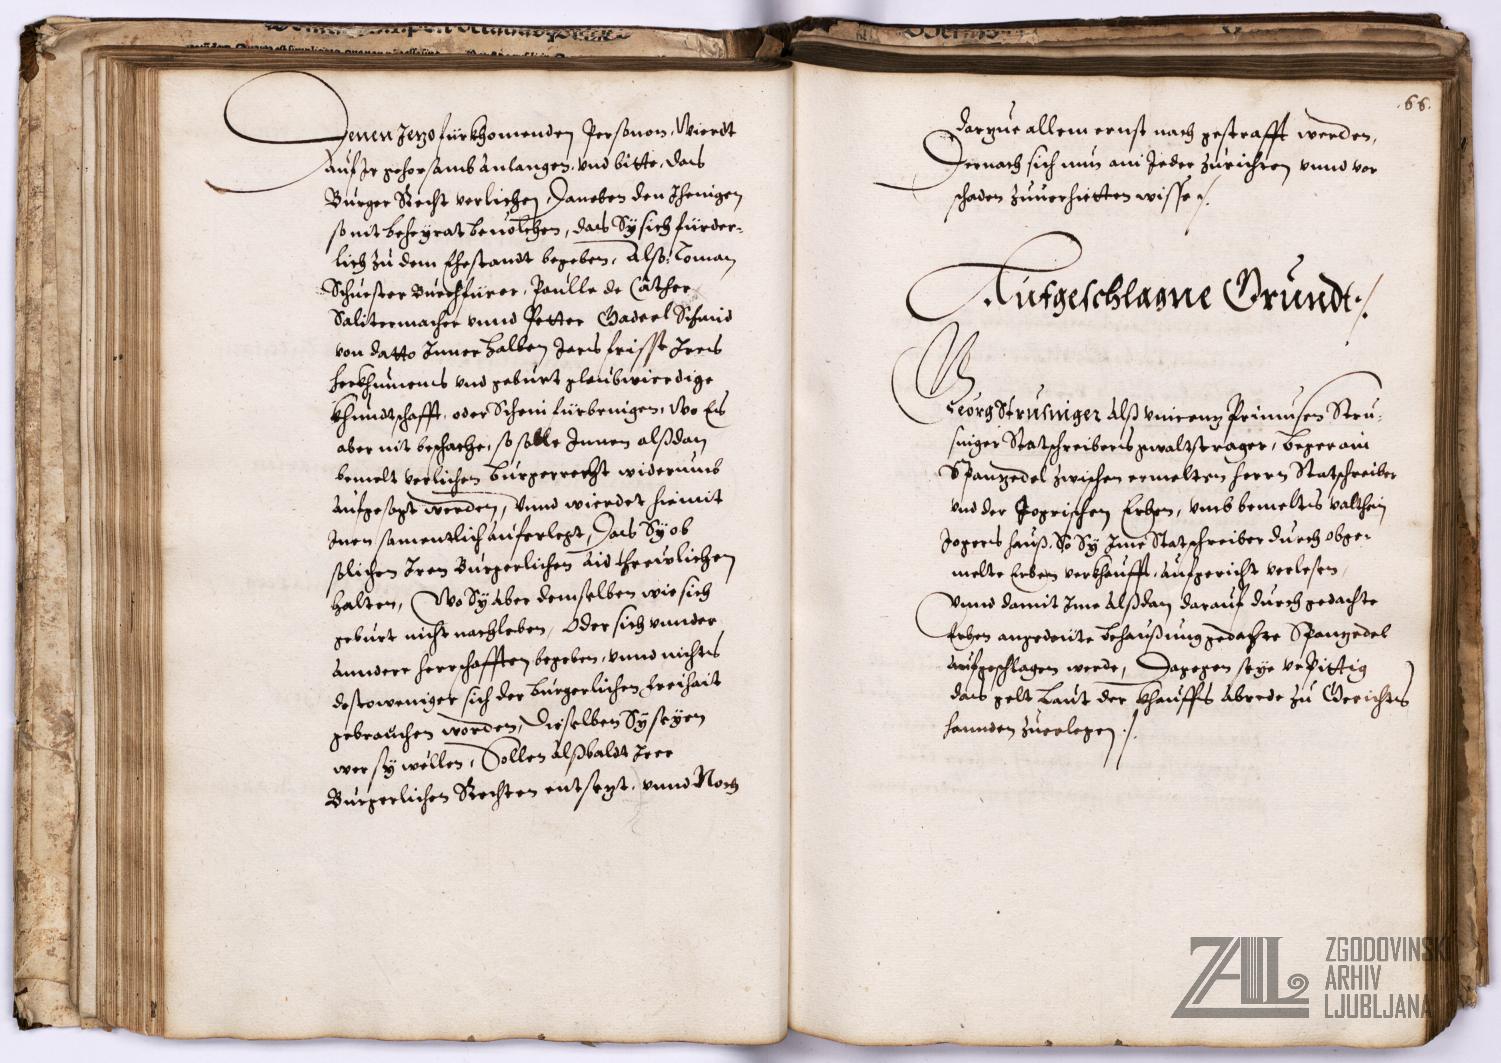 Denen Jetzo fürkhomenden Personen, Wierdt
auf Ir gehorsamb anlangen, vnd bitte, das
Burger Recht verlichen, Daneben den Jhenigen
so nit beheyrat beuolchen, das Sÿ sich fürder-
lich zu dem Ehestandt begeben, Als: Toman
Schuester Buechfürer, Paulle de
Salitermacher vnnd Petter Schmid
von datto Inner halben Jars frisst Ires
herkhumens vnd geburt glaubwierdige
khundtschafft, oder Schein fürbringen, Wo Es
aber nit beschache, so solle Innen alßdan
bemelt verlichen burgerrecht widerumb
aufgesagt werden, Vnnd wierdet hiemit
Inen samentlich auferlegt, Das Sÿ ob
solichen Iren Burgerlichen aid threwlichen
halten, Wo Sÿ aber demselben wie sich
geburt nicht nachleben, Oder sich vnnder
anndere herrschafften begeben, vnnd nichts
destoweniger sich der burgerlichen freihait
gebrauchen worden, Dieselben Sÿ seÿen
wer sÿ wellen, Sollen alßbaldt Irer
Burgerlichen Rechten entsezt, vnnd Noch
66.
darzue allem ernst nach gestrafft werden,
Dernach sich nun ain Jeder zurichten vnnd vor
schaden zuuerhietten wisse
Aufgeschlagne Grundt
Georg Strusniger alß vnicenz Primusen Stru-
sniger Statschreibers gwaltstrager, beger ain
Spanzedel zwischen ermelten herrn Statschreiber
vnd der Jogrischen Erben, vmb bemeltes valthein
Jogers hauß, So Sÿ Ime Statschreiber durch obge-
melte Erben verkhaufft, aufgericht verlesen,
Vnnd damit Ime Alßdan darauf durch gedachte
Erben angedeüte behaußung gedachte Spanzedel
aufgeschlagen werde, Dagegen seÿe
das gelt Laut der khauffs abrede zu Gerichts
hannden zuerlegen
ZAL
ZGODOVINSKI
ARHIV
LJUBLJANA